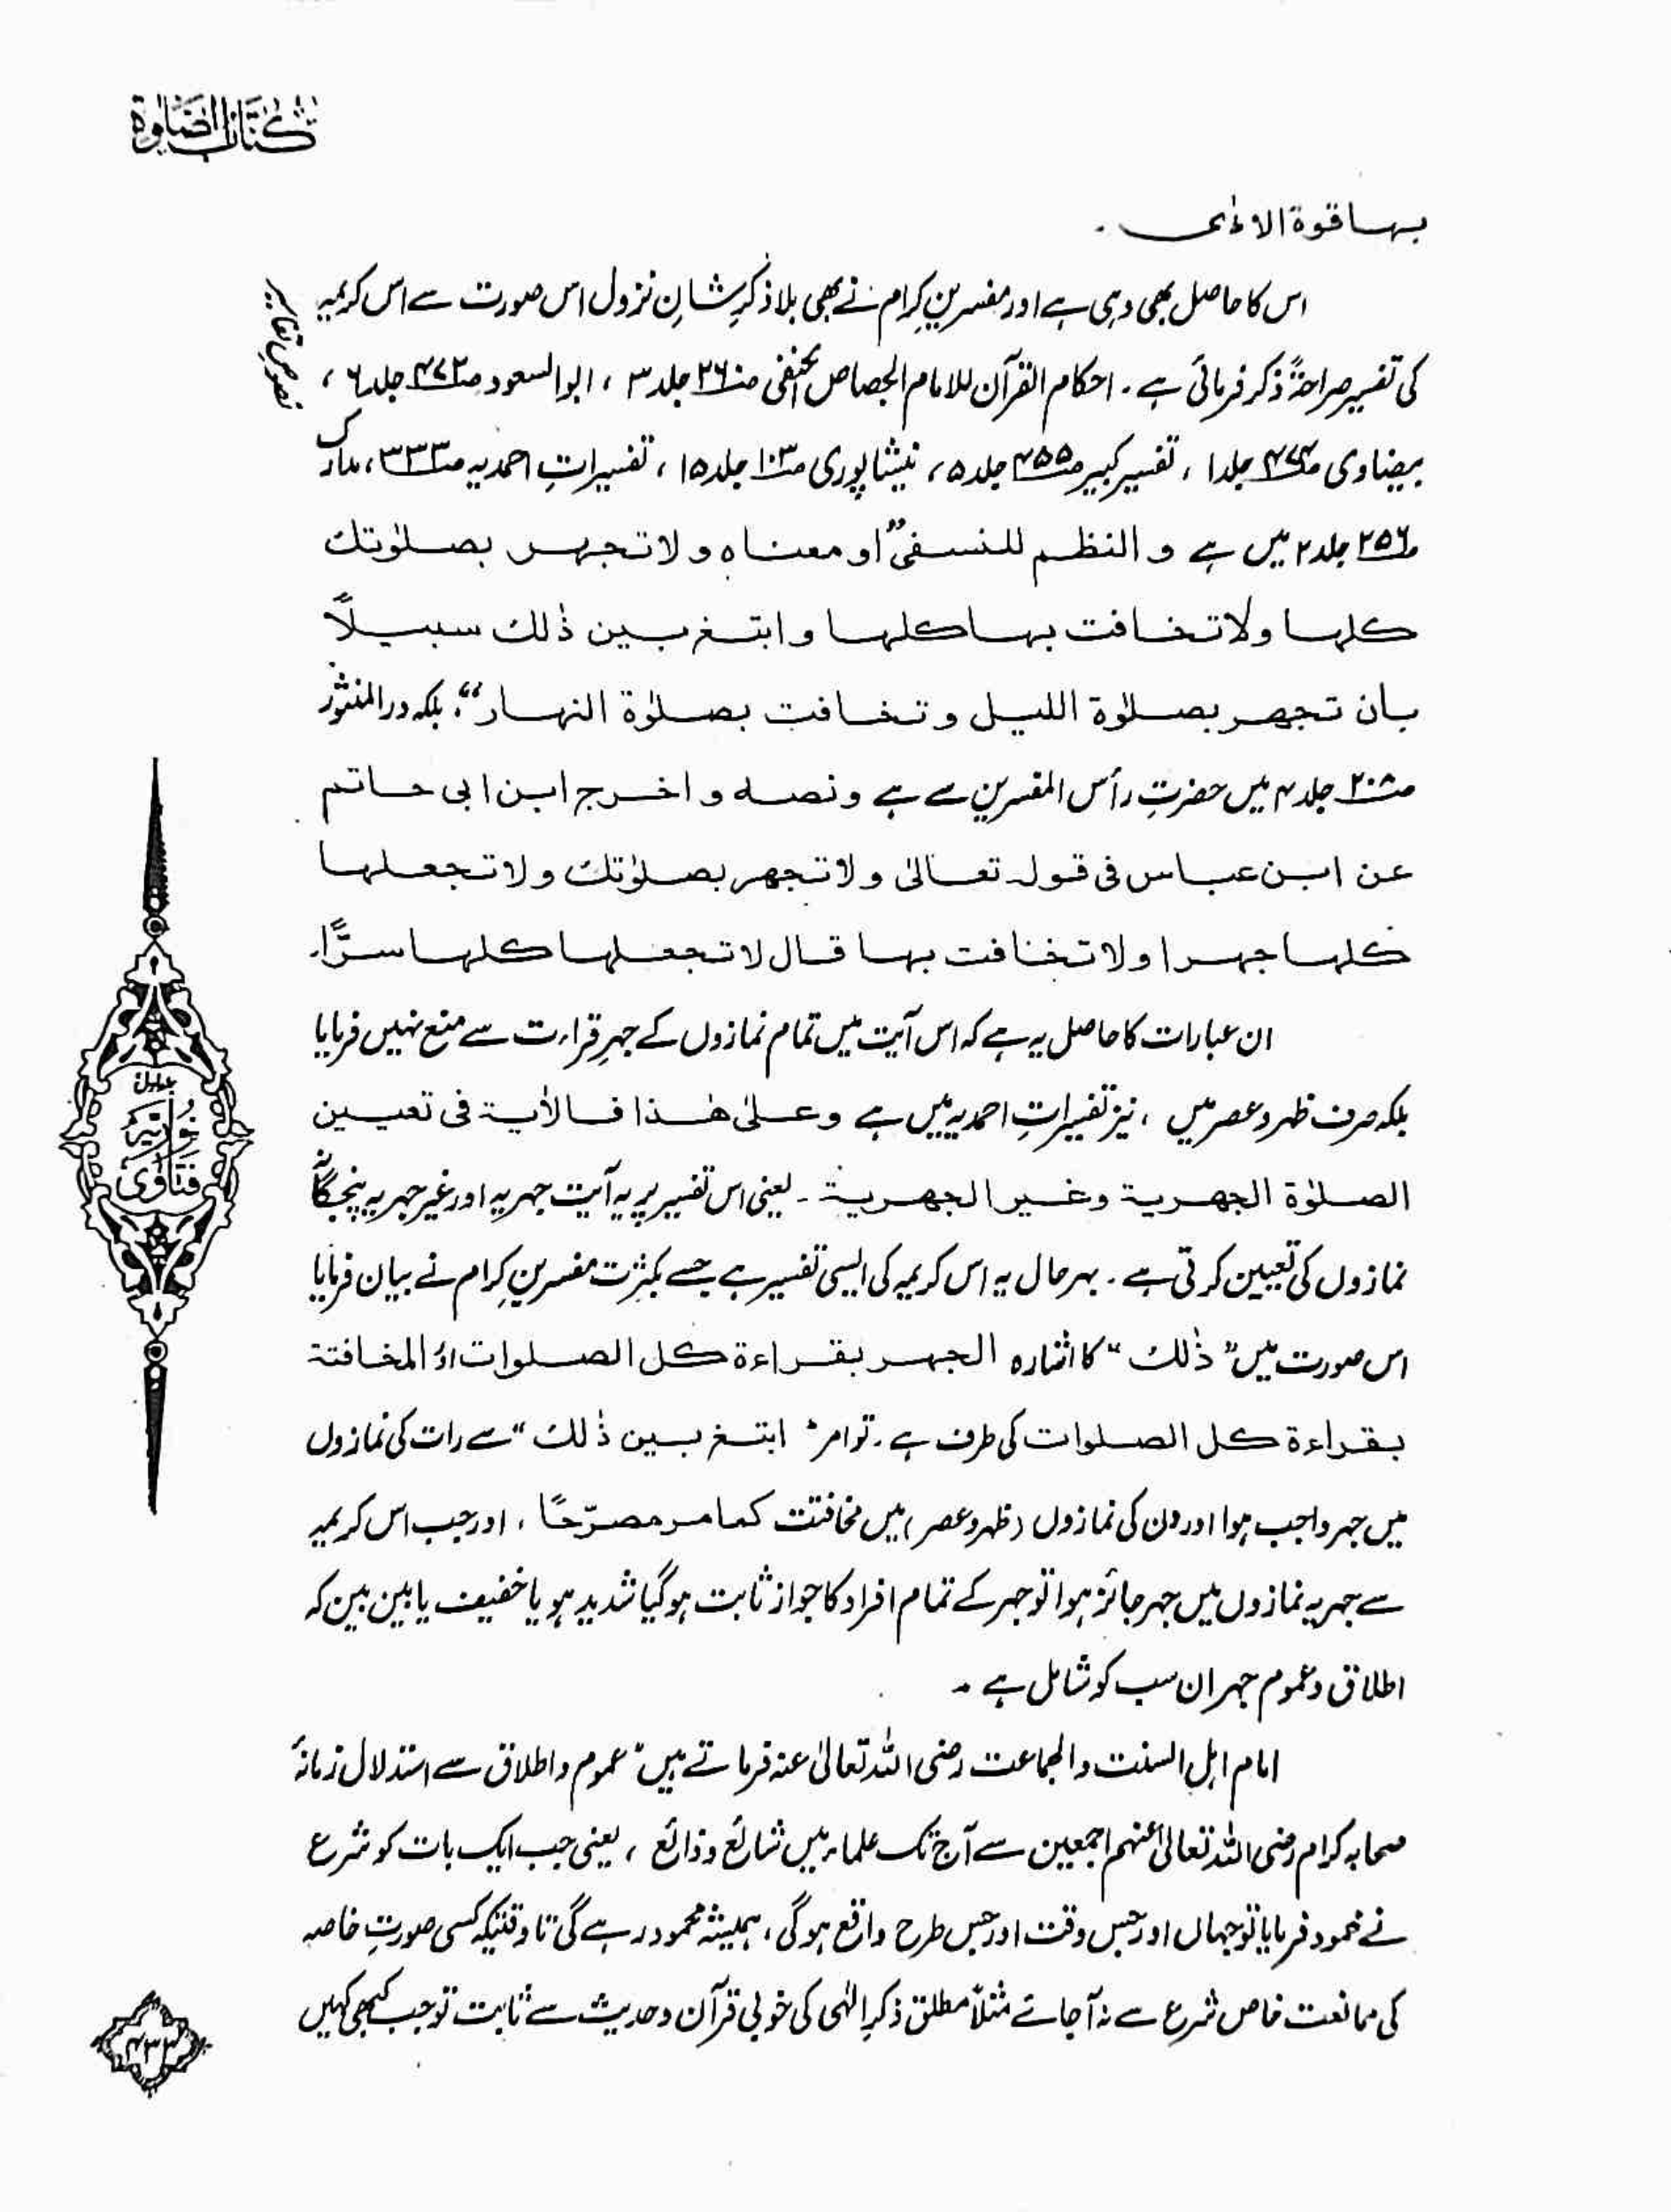 كتاب الصلوٰة
بہا قوة الاذٰی۔
اس کا حاصل بھی وہی ہے اور مفسرینِ کرام نے بھی بلا ذکرِ شانِ نزول اس صورت سے اس کریمہ
نصوص تفاسیر
کی تفسیر صراحۃً ذکر فرمائی ہے۔ احکام القرآن للامام الجصاص الحنفی جلد ۳ ، ابوالسعود جلد ۶ ،
بیضاوی جلد ۱ ، تفسیر کبیر ص۴۵۵ جلد ۵ ، نیشاپوری ص۱۰۳ جلد ۱۵ ، تفسیراتِ احمدیہ ص۳۳۳ ، مدارک
ص۲۵۶ جلد ۲ میں ہے و النظم للنسفی "او معناہ ولا تجہر بصلوٰتك
كلہا ولا تخافت بہا كلہا وابتغ بين ذٰلك سبيلاً
بان تجهر بصلوٰة الليل و تخافت بصلوٰة النہار"، بلکہ درالمنثور
ص۲۰۸ جلد ۴ میں حضرتِ رأس المفسرین سے ہے ونصه و اخرج ابن ابی حاتم
عن ابن عباس فی قوله تعالیٰ ولا تجهر بصلوٰتك ولا تجعلہا
كلہا جہرا ولا تخافت بہا قال لا تجعلہا كلہا سرًّا۔
ان عبارات کا حاصل یہ ہے کہ اس آیت میں تمام نمازوں کے جہرِ قراءت سے منع نہیں فرمایا
بلکہ صرف ظہر و عصر میں ، نیز تفسیراتِ احمدیہ میں ہے وعلیٰ ھٰذا فالاٰیۃ فی تعیین
الصلوٰة الجهرية وغير الجهرية۔ یعنی اس تفسیر پر یہ آیت جہریہ اور غیر جہریہ پنجگانہ
نمازوں کی تعیین کرتی ہے۔ بہرحال یہ اس کریمہ کی ایسی تفسیر ہے جسے بکثرت مفسرینِ کرام نے بیان فرمایا
اس صورت میں "ذٰلك" کا اشارہ الجہر بقراءة كل الصلوات اؤ المخافتة
بقراءة كل الصلوات کی طرف ہے۔ تو امر "ابتغ بين ذٰلك" سے رات کی نمازوں
میں جہر واجب ہوا اور دن کی نمازوں (ظہر و عصر) میں مخافتت كما مر مصرّحًا ، اور جب اس کریمہ
سے جہریہ نمازوں میں جہر جائز ہوا تو جہر کے تمام افراد کا جواز ثابت ہو گیا شدید ہو یا خفیف یا بین بین کہ
اطلاق و عموم جہر ان سب کو شامل ہے۔
امام اہل السنت والجماعت رضی اللہ تعالیٰ عنہ فرماتے ہیں "عموم و اطلاق سے استدلال زمانۂ
صحابہ کرام رضی اللہ تعالیٰ عنہم اجمعین سے آج تک علماء میں شائع و ذائع ، یعنی جب ایک بات کو شرع
نے محمود فرمایا تو جہاں اور جس وقت اور جس طرح واقع ہو گی ، ہمیشہ محمود رہے گی تا وقتیکہ کسی صورتِ خاصہ
کی ممانعت خاص شرع سے نہ آ جائے مثلاً مطلق ذکرِ الٰہی کی خوبی قرآن و حدیث سے ثابت تو جب کبھی کہیں
نوریہ
فتاوی
۴۳۳